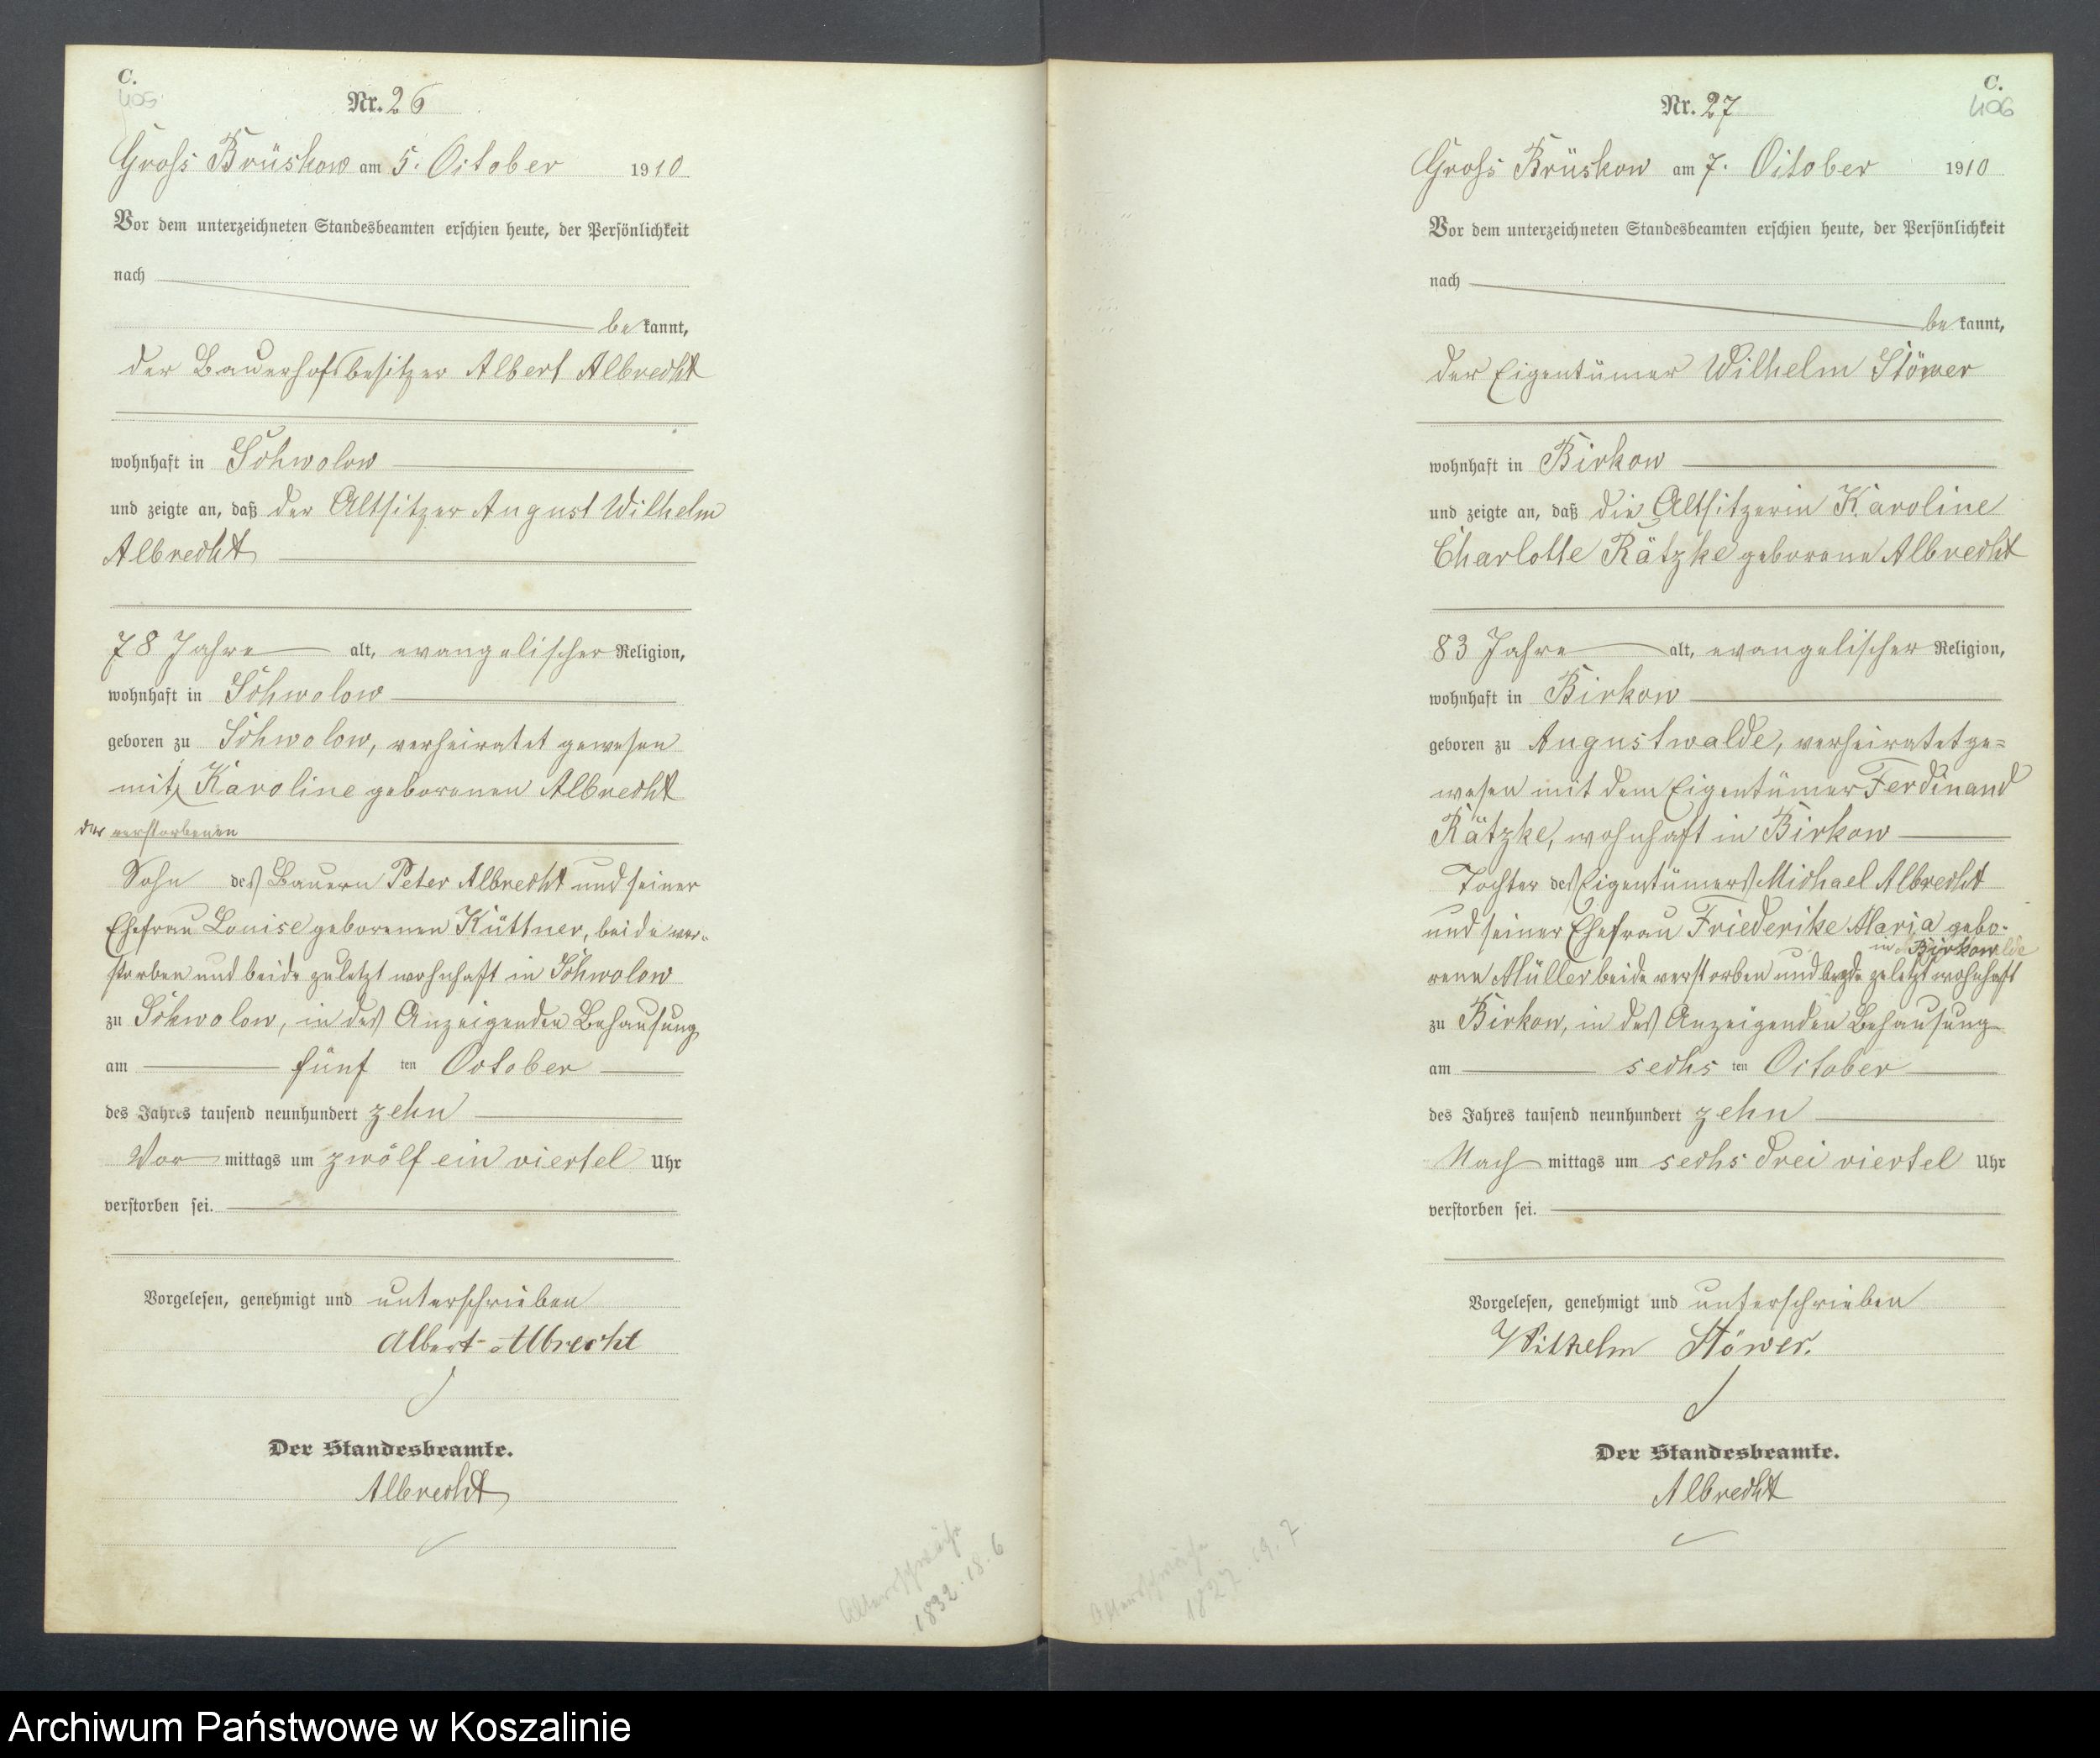 C.
405
Nr. 26
Gross Brüskow am 5. October 1910
Vor dem unterzeichneten Standesbeamten erschien heute, der Persönlichkeit
nach
bekannt,
der Bauerhofsbesitzer Albert Albrecht
wohnhaft in Schwolow
und zeigte an, daß der Altsitzer August Wilhelm
Albrecht
78 Jahre alt, evangelischer Religion,
wohnhaft in Schwolow
geboren zu Schwolow, verheiratet gewesen
mit Karoline geborenen Albrecht
der verstorbenen
Sohn des Bauern Peter Albrecht und seiner
Ehefrau Louise geborenen Küttner, beide ver-
storben und beide zuletzt wohnhaft in Schwolow
zu Schwolow, in des Anzeigenden Behausung
am fünf ten October
des Jahres tausend neunhundert zehn
Vor mittags um zwölf ein viertel Uhr
verstorben sei.
Vorgelesen, genehmigt und unterschrieben
Albert Albrecht
Der Standesbeamte.
Albrecht
Altersschwäche
1832. 18. 6
C.
406
Nr. 27
Gross Brüskow am 7. October 1910
Vor dem unterzeichneten Standesbeamten erschien heute, der Persönlichkeit
nach
bekannt,
der Eigentümer Wilhelm Stöwer
wohnhaft in Birkow
und zeigte an, daß die Altsitzerin Karoline
Charlotte Rätzke geborene Albrecht
83 Jahre alt, evangelischer Religion,
wohnhaft in Birkow
geboren zu Augustwalde, verheiratet ge=
wesen mit dem Eigentümer Ferdinand
Rätzke, wohnhaft in Birkow
Tochter des Eigentümers Michael Albrecht
und seiner Ehefrau Friederike Maria gebo-
in Birkow
rene Müller beide verstorben und beide zuletzt wohnhaft
zu Birkow, in des Anzeigenden Behausung
am sechs ten October
des Jahres tausend neunhundert zehn
Nach mittags um sechs drei viertel Uhr
verstorben sei.
Vorgelesen, genehmigt und unterschrieben
Wilhelm Stöwer.
Der Standesbeamte.
Albrecht
Altersschwäche
1827. 19. 7.
Archiwum Państwowe w Koszalinie